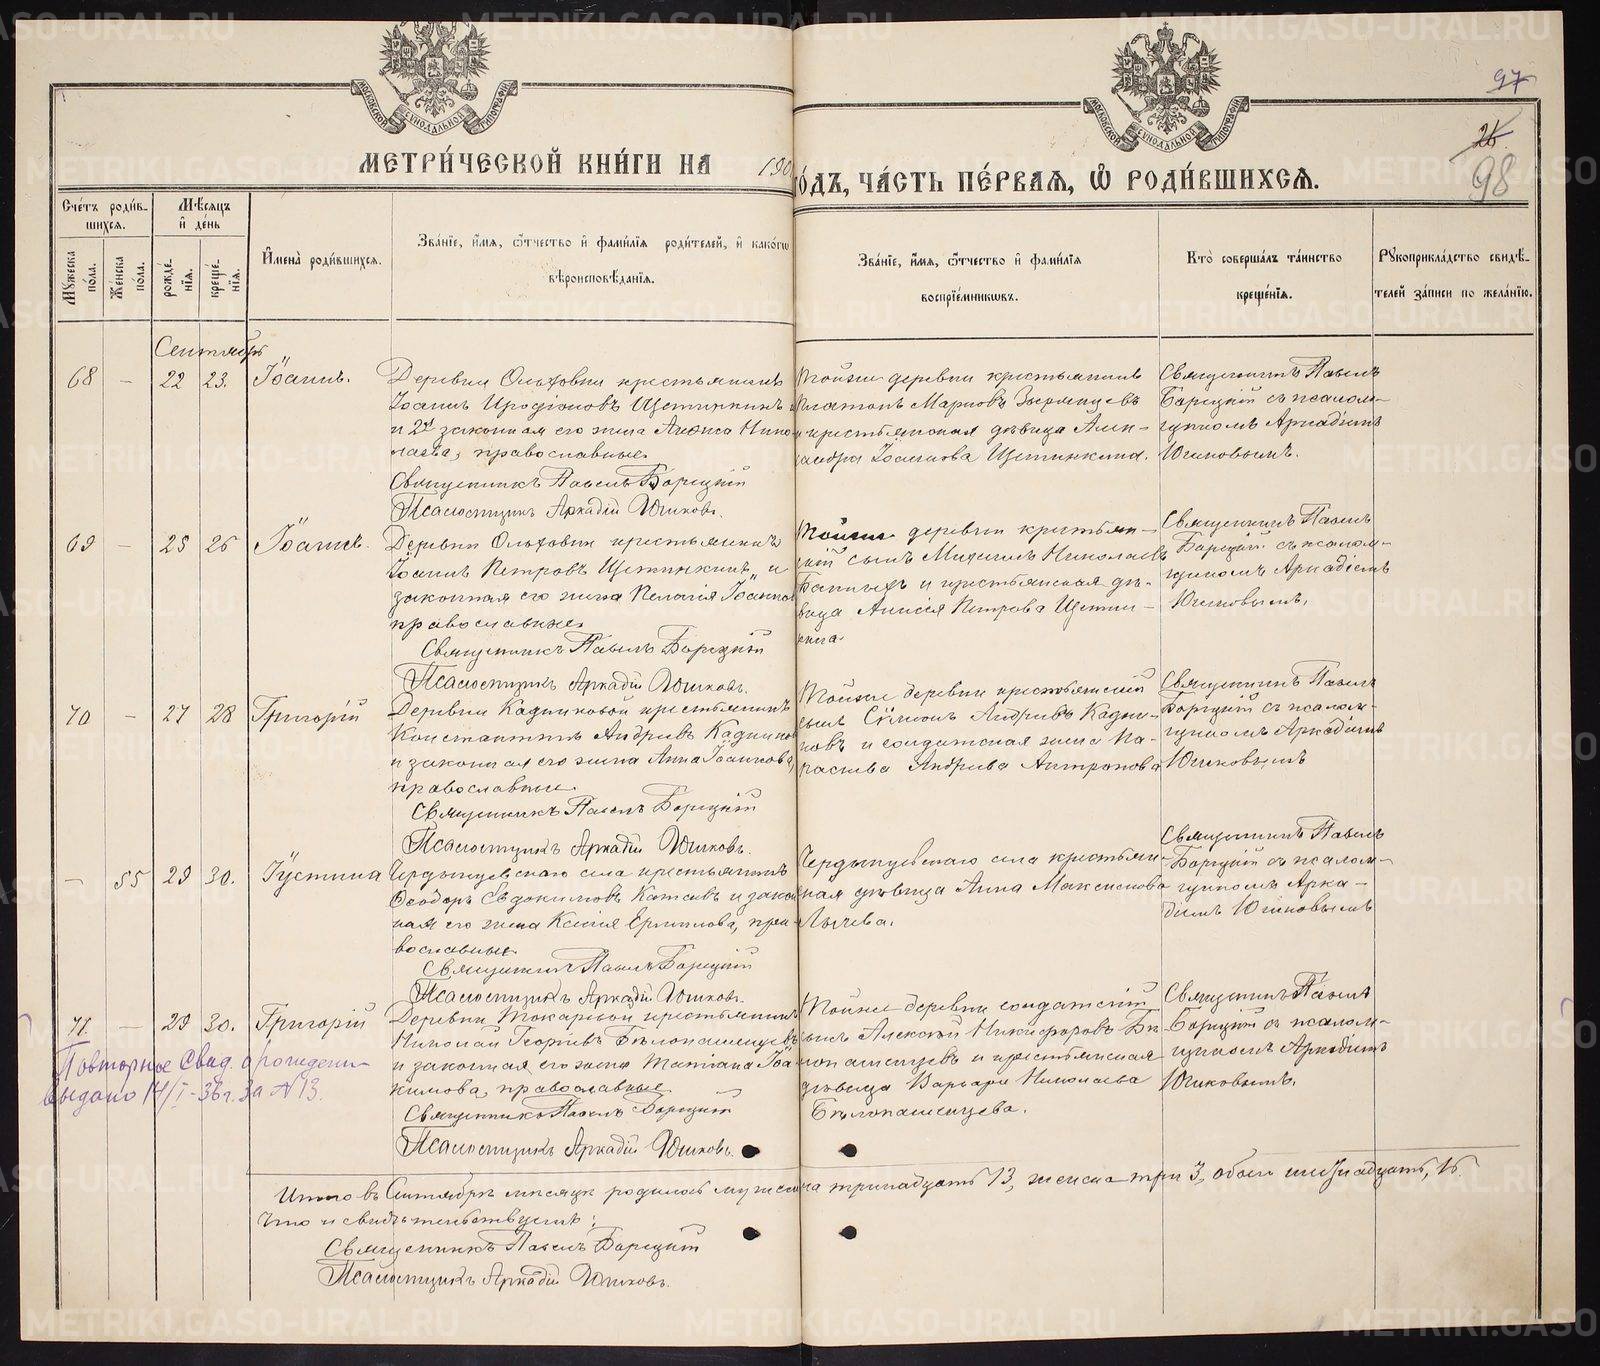 МЕТРИ́ЧЕСКОЙ КНИ́ГИ НА 190
ГО́ДЪ, ЧА́СТЬ ПЕ́РВАЯ, Ѡ РОДИ́ВШИХСЯ.
97
26
98
Сче́тъ роди́вшихся.
Мѣ́сяцъ и де́нь
Му́жеска по́ла.
Же́нска по́ла.
рожде́нїя.
креще́нїя.
Имена̀ роди́вшихся.
Зва́нїе, и́мя, ѻ́тчество и фами́лїя роди́телей, и како́гѡ
вѣроисповѣ́данїя.
Зва́нїе, и́мя, ѻ́тчество и фами́лїя
воспрїе́мникѡвъ.
Кто̀ соверша́лъ та́инство
креще́нїя.
Рукоприкла́дство свидѣ́телей за́писи по жела́нїю.
Сентябрь
68 – 22 23. Іоаннъ.
Деревни Ольховки крестьянинъ
Іоаннъ Иродіоновъ Щетинкинъ
и 2й законная его жена Анѳиса Нико
лаева, православные
Священникъ Павелъ Борецкій
Псаломщикъ Аркадій Юшковъ.
Тойже деревни крестьянинъ
Платонъ Марковъ Зырянцевъ
и крестьянская дѣвица Алек
сандра Іоаннова Щетинкина.
Священникъ Павелъ
Борецкій съ псалом-
щикомъ Аркадіемъ
Юшковымъ.
69 – 25 26 Іоаннъ.
Деревни Ольховки крестьянинъ
Іоаннъ Петровъ Щетинкинъ и
законная его жена Пелагія Іоаннова
православные
Священникъ Павелъ Борецкій
Псаломщикъ Аркадій Юшковъ.
Тойже деревни крестьян-
скій сынъ Михаилъ Николаевъ
и крестьянская дѣ-
вица Анисія Петрова Щетин-
кина.
Священникъ Павелъ
Борецкій съ псалом-
щикомъ Аркадіемъ
Юшковымъ.
70 – 27 28 Григорій
Деревни Кадниковой крестьянинъ
Константинъ Андреевъ Кадников
и законная его жена Анна Іоаннова,
православные
Священникъ Павелъ Борецкій
Псаломщикъ Аркадій Юшковъ.
Тойже деревни крестьянскій
сынъ Сѵмеонъ Андреевъ Кадни-
ковъ и солдатская жена Па-
раскева Андреева Антропова
Священникъ Павелъ
Борецкій съ псалом-
щикомъ Аркадіемъ
Юшковымъ
– 55 29 30. Іустина
Чердынцевскаго села крестьянинъ
Ѳеодоръ Евдокимовъ Котовъ и закон
ная его жена Ксенія Ермилова, пра
вославные.
Священникъ Павелъ Борецкій
Псаломщикъ Аркадій Юшковъ.
Чердынцевскаго села крестьян-
ская дѣвица Анна Максимова
Лычева.
Священникъ Павелъ
Борецкій съ псалом-
щикомъ Арка-
діемъ Юшковымъ
71. – 29 30. Григорій
Деревни Токаревой крестьянинъ
Николай Георгіевъ Бѣлопашенцевъ
и законная его жена Татіана Іоа
кимова, православные
Священникъ Павелъ Борецкій
Псаломщикъ Аркадій Юшковъ.
Тойже деревни солдатскій
сынъ Алексѣй Никифоровъ Бѣ
лопашенцевъ и крестьянская
дѣвица Варвара Николаева
Бѣлопашенцева.
Священникъ Павелъ
Борецкій съ псалом-
щикомъ Аркадіемъ
Юшковымъ.
Повторное Свид. о рождени-
выдано 14/I-36г. За № 13.
Итого въ Сентябрѣ мѣсяцѣ родилось мужеска тринадцать 13, женска три 3, обоего шестнадцать, 16.
Что и свидѣтельствуемъ:
Священникъ Павелъ Борецкій
Псаломщикъ Аркадій Юшковъ.
METRIKI.GASO-URAL.RU